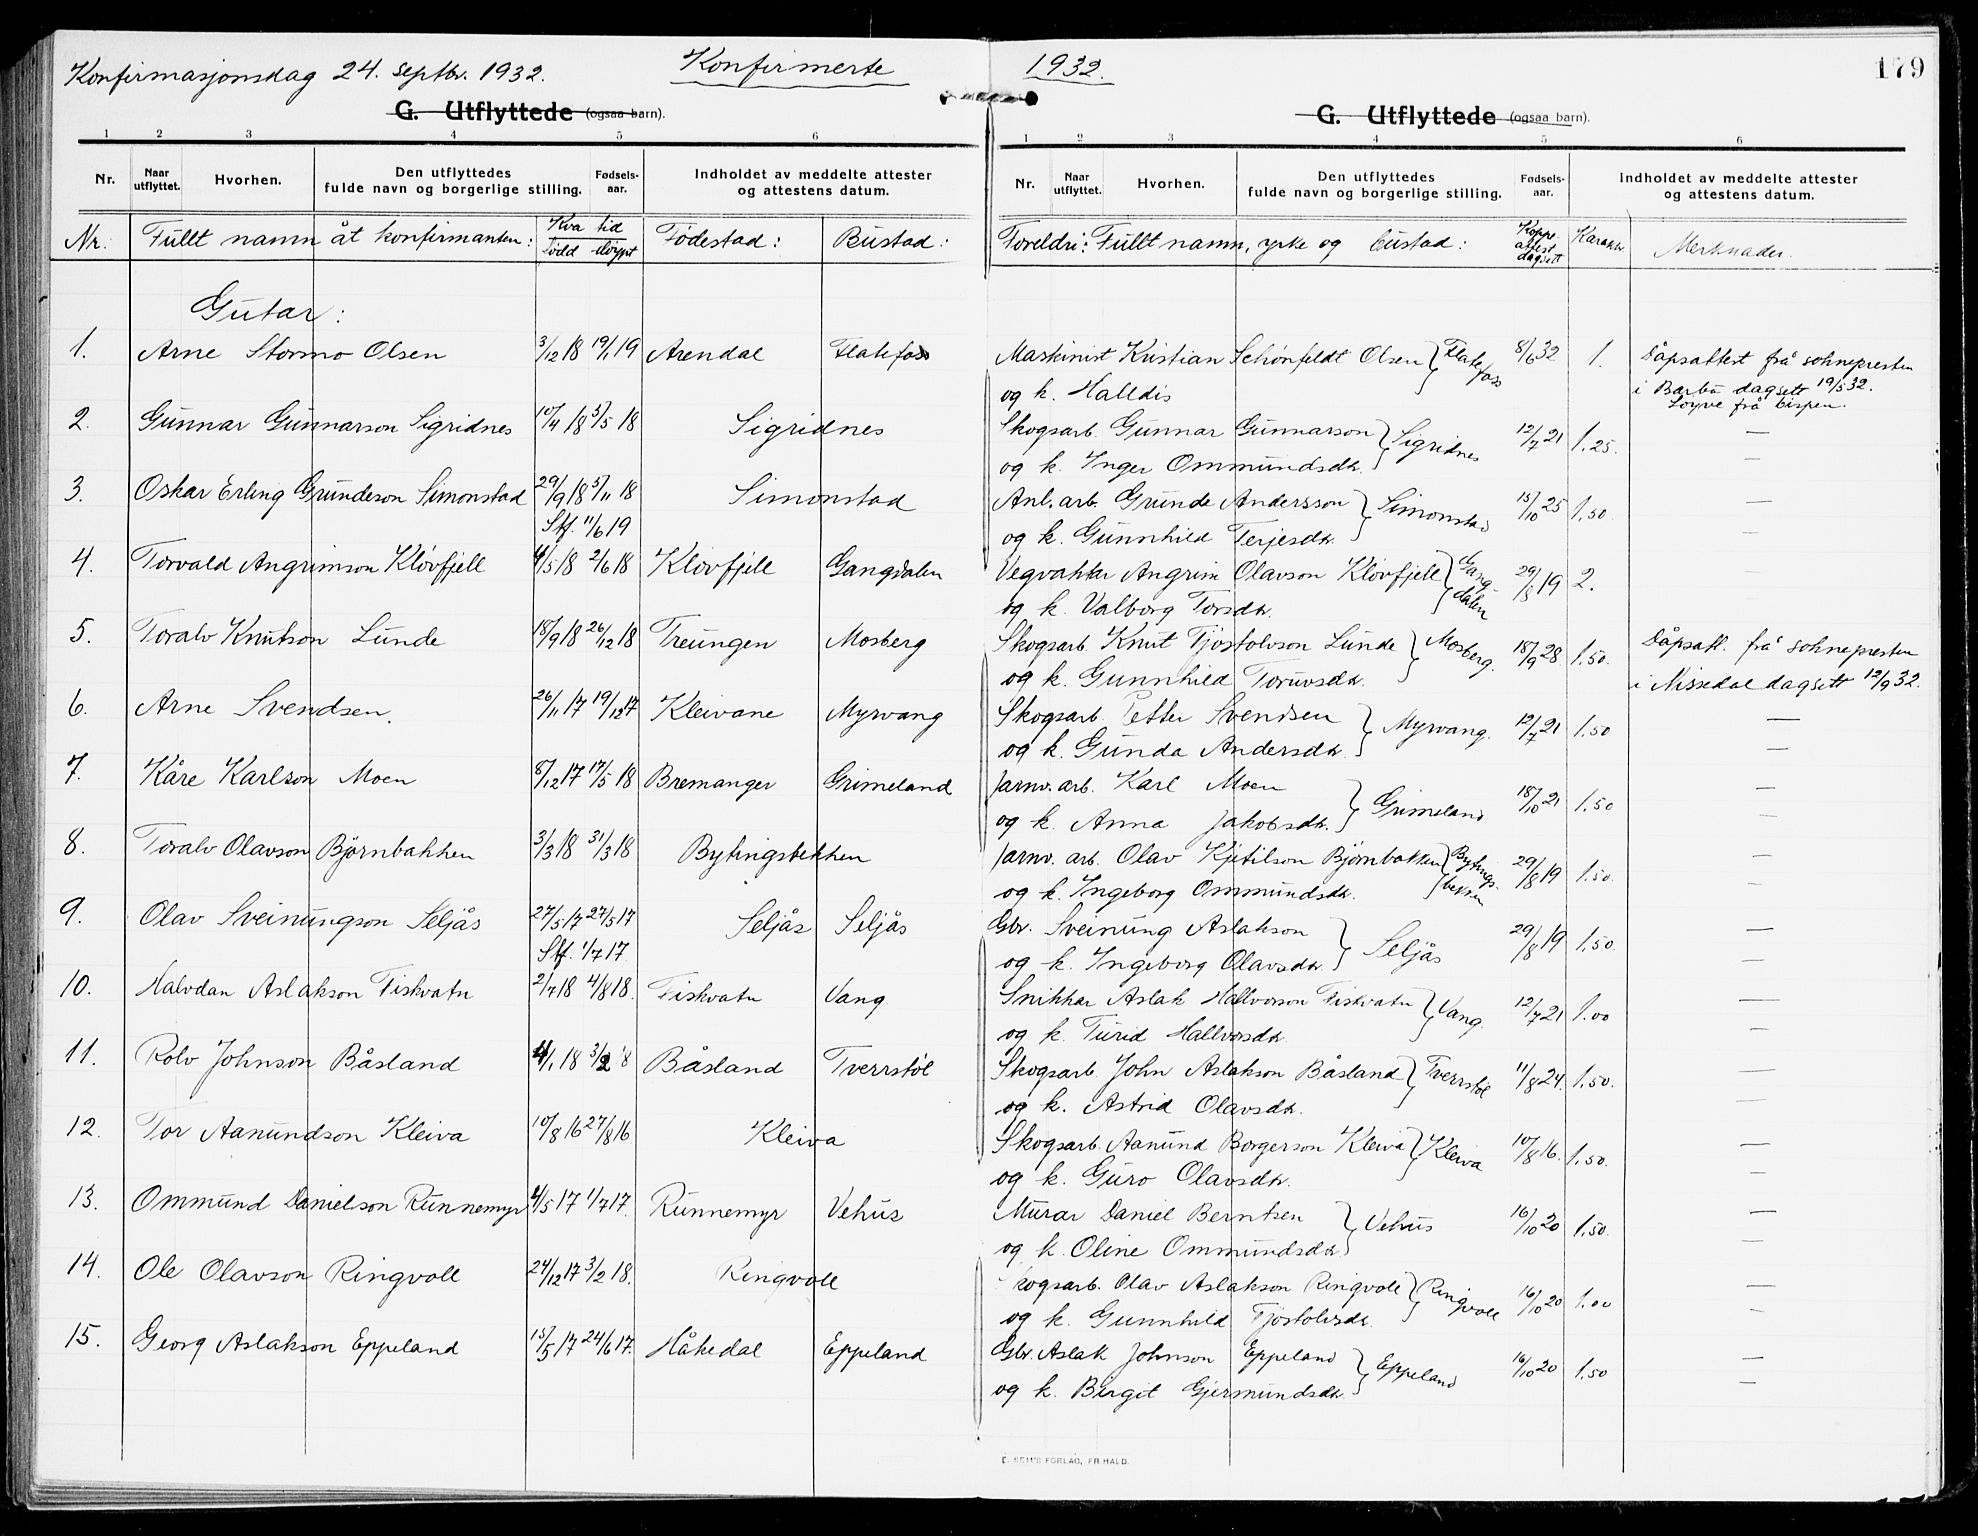 Konfirmasjonsdag 24. septbr. 1932. Konfirmerte
G. Utflyttede (ogsaa barn).
1 2 3 4 5 6
Nr. Naar utflyttet. Hvorhen. Den utflyttedes fulde navn og borgerlige stilling. Fødsels-aar. Indholdet av meddelte attester og attestens datum.
Nr. Fullt namn åt konfirmanten: Kva tid född döypt Födestad: Bustad:
Gutar:
1. Arne Stormo Olsen 3/12 18 19/1 19 Arendal Flatefoss
2. Gunnar Gunnarson Sigridnes 10/4 18 5/5 18 Sigridnes
3. Oskar Erling Grundeson Simonstad 29/9 18 5/11 18 Simonstad
Stf. 11/6 19
4. Torvald Angrimson Klövfjell 4/5 18 2/6 18 Klövfjell Gangdalen
5. Toralv Knutson Lunde 18/9 18 26/12 18 Treungen Mosberg
6. Arne Svendsen. 26/11 17 19/12 17 Kleivane Myrvang
7. Kåre Karlson Moen 8/12 17 17/5 18 Bremanger Grimeland
8. Toralv Olavson Björnbakken 3/3 18 31/3 18 Bytingsbekken
9. Olav Sveinungson Seljås 27/5 17 27/5 17 Seljås Seljås
Stf. 1/7 17
10. Halvdan Aslakson Fiskvatn 2/7 18 4/8 18. Fiskvatn Vang
11. Rolv Johnson Båsland 4/1 18 3/2 18 Båsland Tverrstöl
12. Tor Aanundson Kleiva 10/8 16 27/8 16 Kleiva
13. Ommund Danielson Runnemyr 4/5 17 1/7 17. Runnemyr Vehus
14. Ole Olavson Ringvoll 24/12 17 3/2 18. Ringvoll
15. Georg Aslakson Eppeland 15/5 17 24/6 17. Håkedal Eppeland
1932. 179
G. Utflyttede (ogsaa barn).
1 2 3 4 5 6
Nr. Naar utflyttet. Hvorhen. Den utflyttedes fulde navn og borgerlige stilling. Fødsels-aar. Indholdet av meddelte attester og attestens datum.
Foreldri: Fullt namn, yrke og bustad: Kopp. attest dagsett Karakter Merknader.
Maskinist Kristian Schönfeldt Olsen } Flatefoss 8/6 32 1. Dåpsattest frå soknepresten
og k. Halldis i Barbu dagsett 19/5 32.
Löyve frå bispen.
Skogsarb. Gunnar Gunnarson } Sigridnes 12/7 21 1.25. —
og k. Inger Ommundsdtr. —
Anl. arb. Grunde Andersson } Simonstad 15/10 25 1.50. —
og k. Gunnhild Terjesdtr. —
Vegvaktar Angrim Olavson Klövfjell } Gangdalen 29/8 19 2.
og k. Valborg Torsdtr.
Skogsarb. Knut Tjöstolvson Lunde } Mosberg. 18/9 28 1.50. Dåpsatt. frå soknepresten
og k. Gunnhild Toruvsdtr. i Nissedal dagsett 12/9 32.
Skogsarb. Petter Svendsen } Myrvang. 12/7 21 1.50 —
og k. Gunda Andersdtr. —
Jarnv. arb. Karl Moen } Grimeland 18/10 21 1.50 —
og k. Anna Jakobsdtr. —
Jarnv. arb. Olav Kjetilson Björnbakken } Bytingsbekken 29/8 19 1.50. —
og k. Ingeborg Ommundsdtr. —
Gbr. Sveinung Aslakson } Seljås 29/8 19 1.50. —
og k. Ingeborg Olavsdtr. —
Snikkar Aslak Hallvorson Fiskvatn } Vang. 12/7 21 1.00 —
og k. Turid Hallvorsdtr. —
Skogsarb. John Aslakson Båsland } Tverrstöl 11/8 24. 1.50. —
og k. Astrid Olavsdtr. —
Skogsarb. Aanund Borgerson Kleiva } Kleiva 10/8 16. 1.50. —
og k. Guro Olavsdtr. —
Murar Daniel Berntsen } Vehus 16/10 20 1.50. —
og k. Oline Ommundsdtr. —
Skogsarb. Olav Aslakson Ringvoll } Ringvoll 16/10 20 1.00 —
og k. Gunnhild Tjöstolvsdtr. —
Gbr. Aslak Johnson Eppeland } Eppeland 16/10 20 1.50 —
og k. Birgit Gjermundsdtr. —
E. SEM'S FORLAG, FR.HALD.